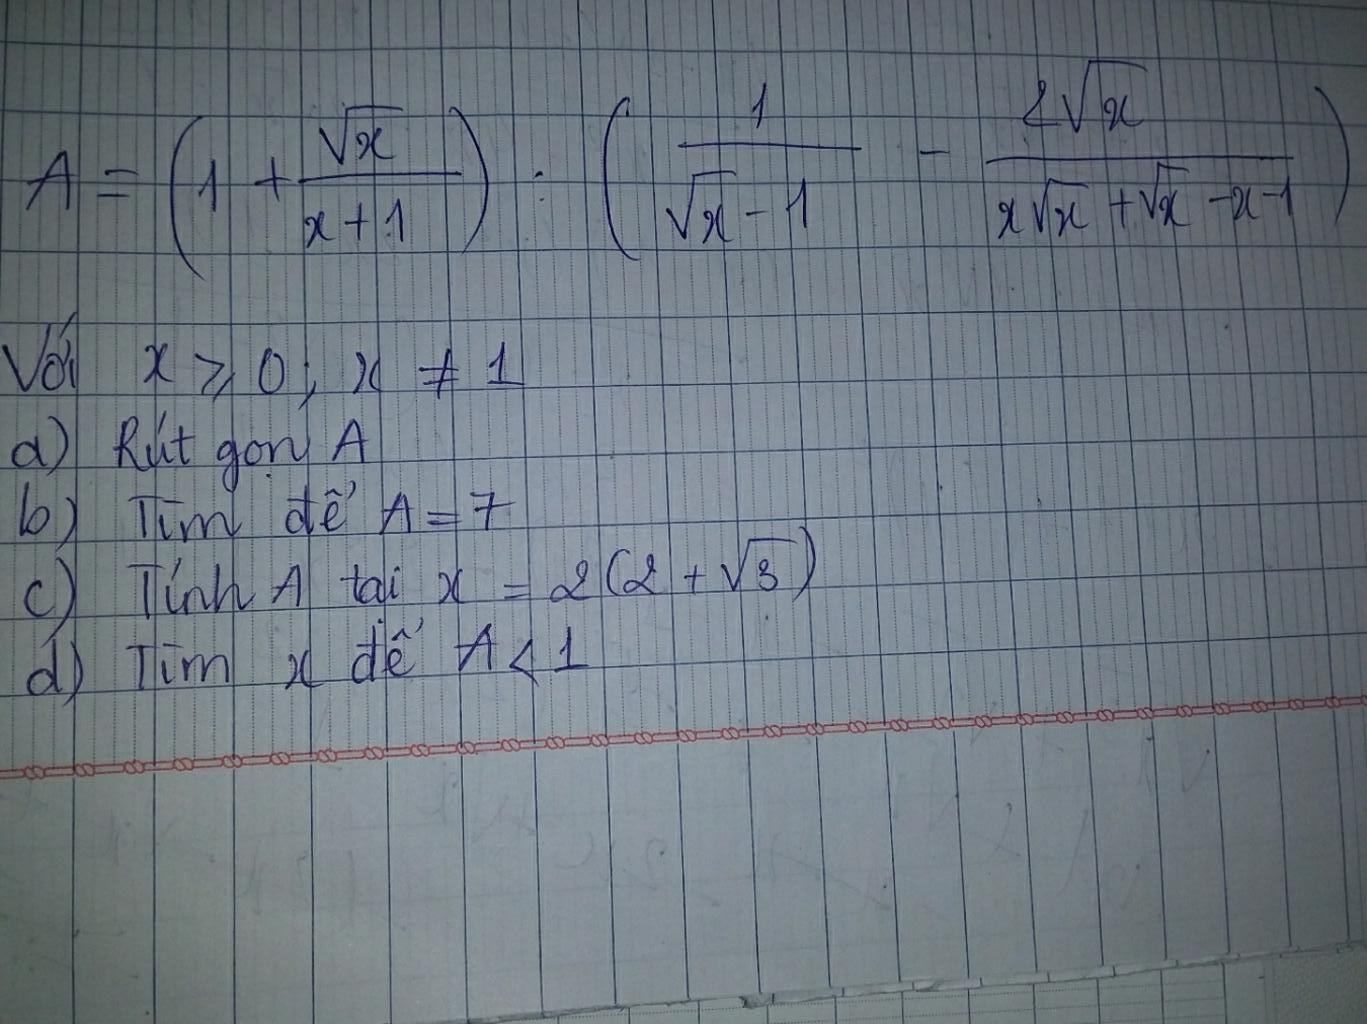 A = (1 + √x/(x + 1)) : (1/(√x - 1) - 2√x/(x√x + √x - x - 1))
Với x ⩾ 0; x ≠ 1
a) Rút gọn A
b) Tìm để A = 7
c) Tính A tại x = 2(2 + √3)
d) Tìm x để A < 1